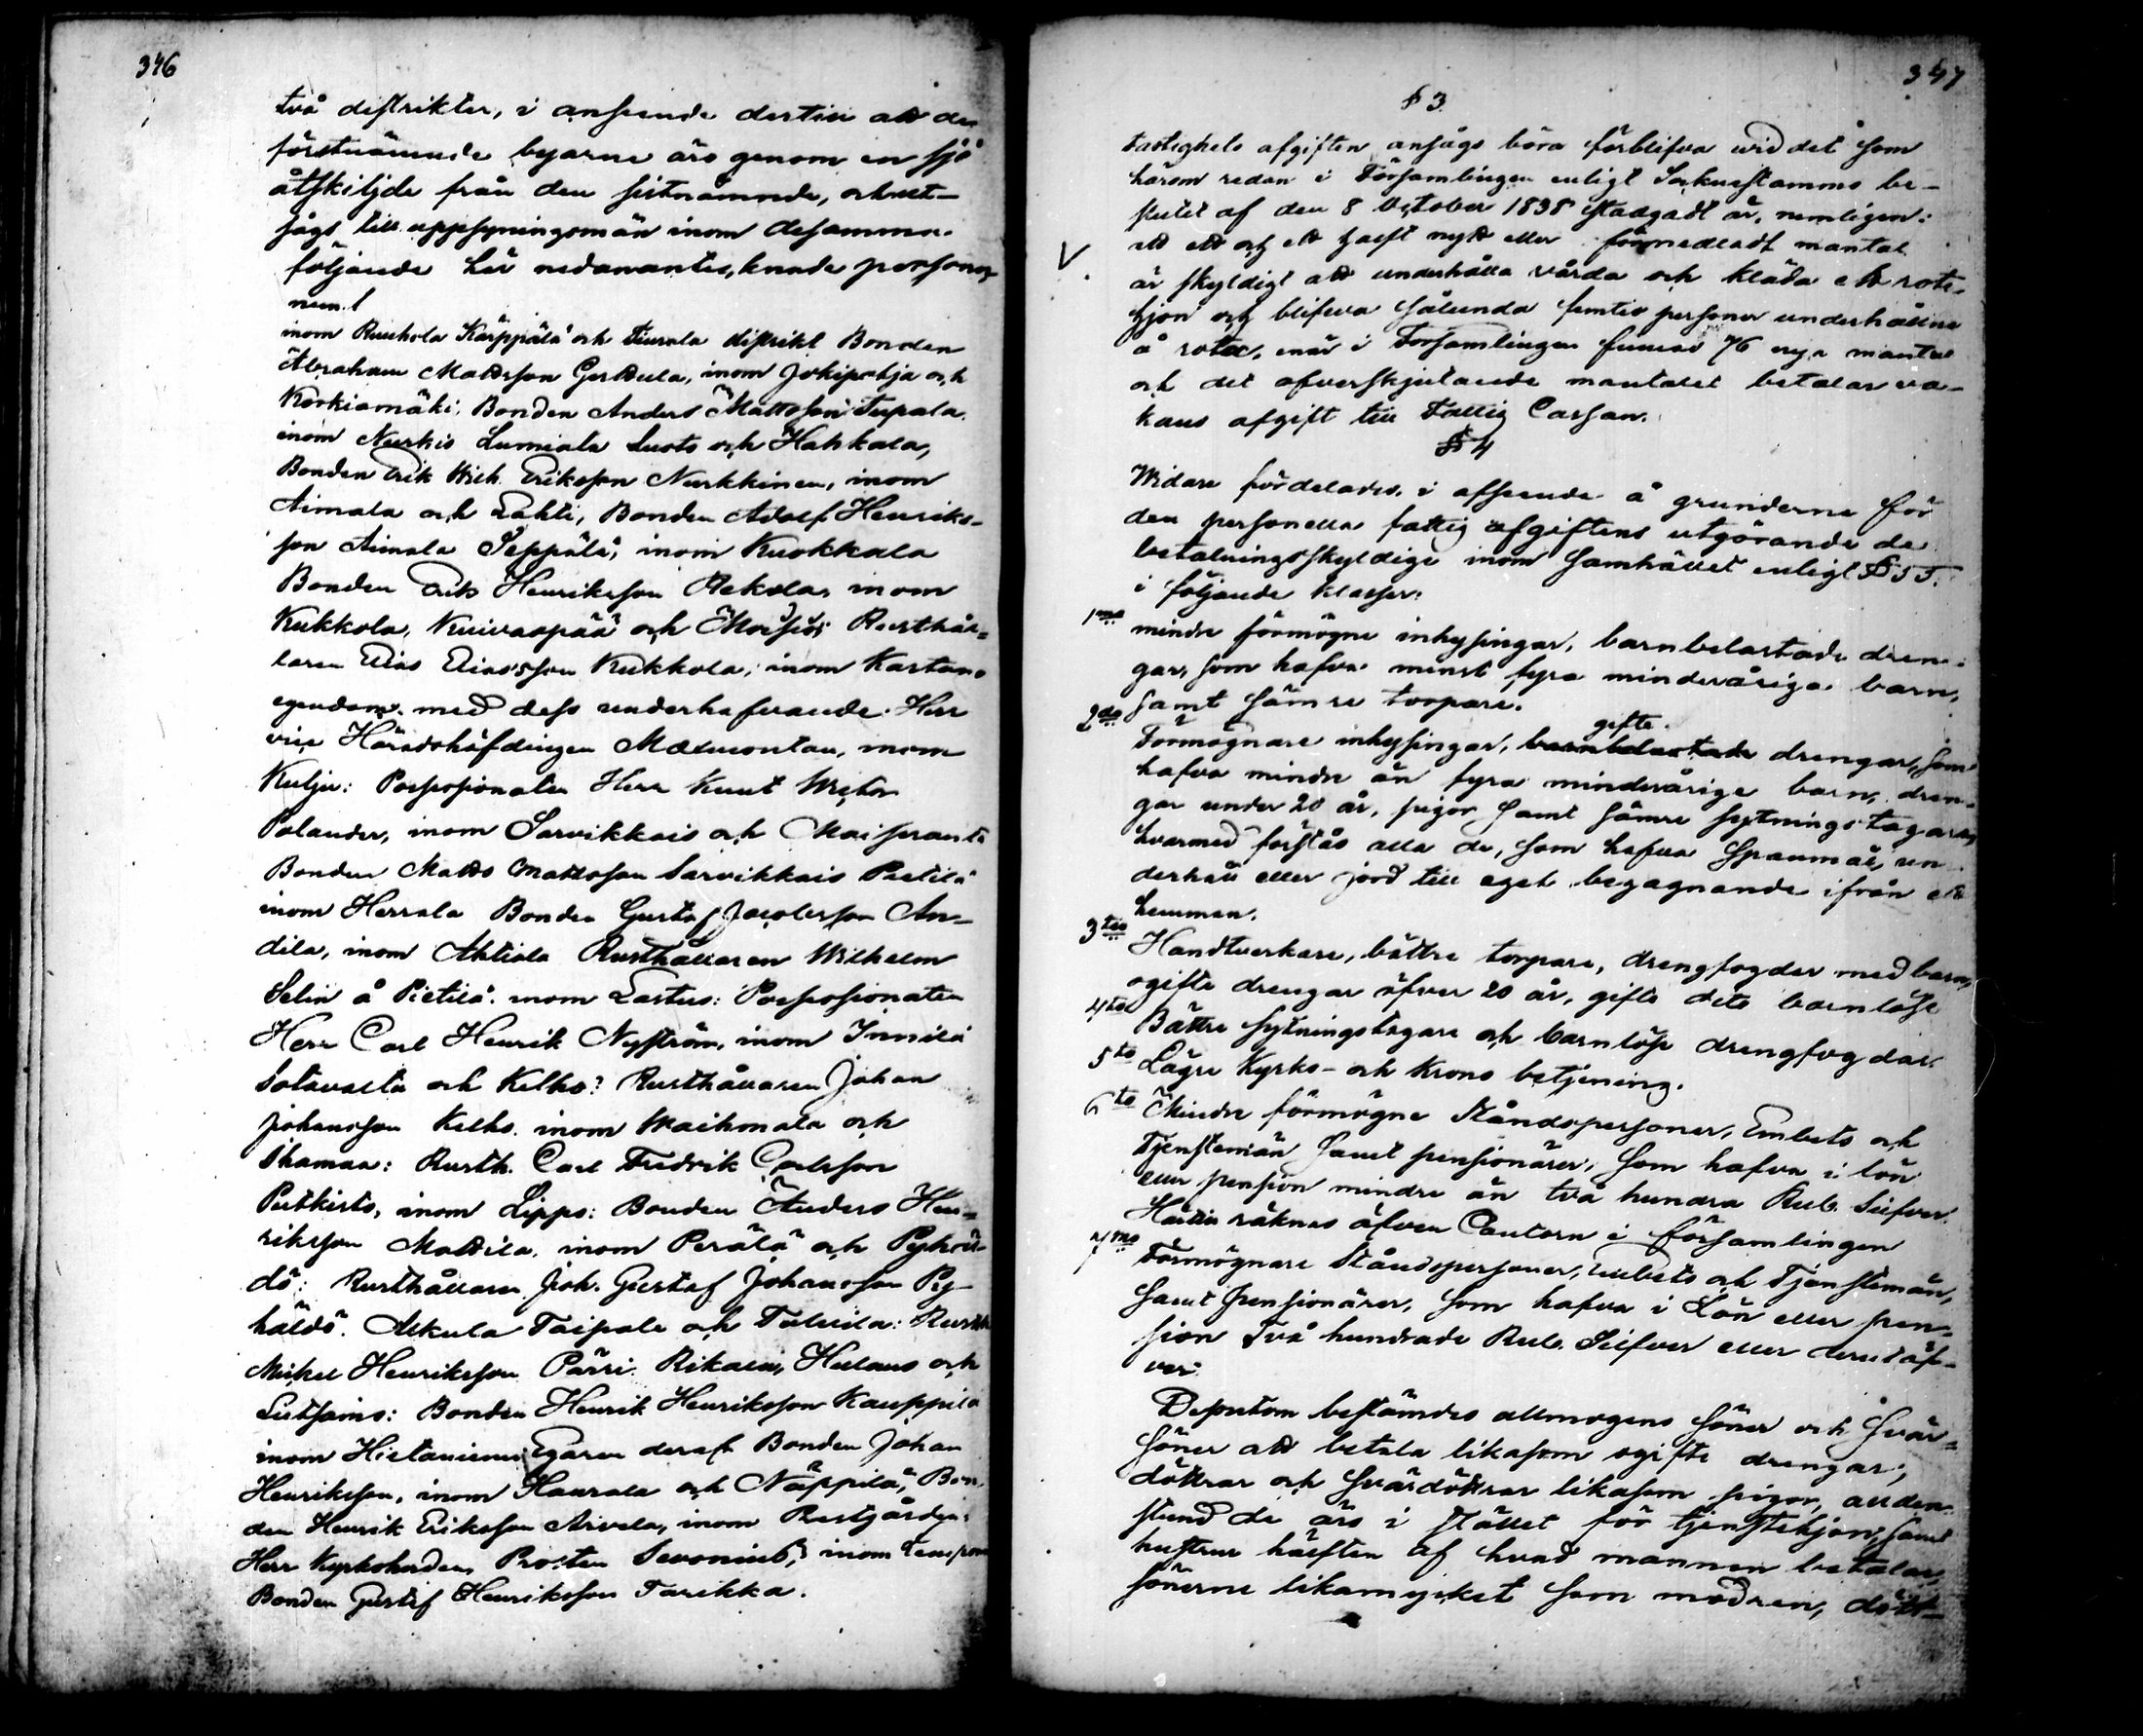 346
två distrikter, i anseende dertill att de
förstnämnde byarne äro genom en sjö
åtskiljde från den sistnämnde, och utt-
sågs till uppsyningsmän inom desamma
följande här nedanantecknade personer
neml
inom Ruuhola Käppälä och Tiurala distrikt Bonden
Abraham Mattsson Gerttula, inom Jokipohja och
Korkiamäki, Bonden Anders Mattsson Tupala
inom Nurkis Lumiala Luoto och Hahkala,
Bonden Erik Wilh. Eriksson Nurkkinen, inom
Aimala och Lahti, Bonden Adolf Henriks-
son Aimala Seppälä, inom Kuokkala
Bonden Erik Henriksson Rekola, inom
Kukkola, Kuivaspää och Moisiö Rusthål-
laren Elias Eliasson Kukkola, inom Kartano
egendom med dess underhafvande Herr
vice Häradshöfdingen Molmontau, inom
Kulju: Possessionaten Herr Knut Wictor
Polander, inom Sarvikkais och Maisiranta
Bonden Matts Mattsson Sarvikkais Pietilä
inom Herrala Bonden Gustaf Jacobsson An-
dila, inom Ahtiala Rusthållaren Wilhelm
Selin å Pietilä. inom Lastus: Possessionaten
Herr Carl Henrik Nyström, inom Innilä
Sotavalta och Kelho? Rusthållaren Johan
Johansson Kelho. inom Waihmala och
Shamaa: Rusth. Carl Fredrik Carlsson
Putkisto, inom Lippo: Bonden Anders Hen-
riksson Mattila. inom Perälä och Pyhäl-
dö: Rusthållaren Joh. Gustaf Johansson Py-
häldö. Alkula Taipale och Tuluila: Rusth
Mickel Henriksson Pärri. Rikala, Hulaus och
Lutsains: Bonden Henrik Henriksson Kauppila
inom Hietaniemi Egaren deraf Bonden Johan
Henriksson, inom Haurala och Näppilä, Bon-
den Henrik Eriksson Arvela, inom Prestgården
Herr Kyrkoherden, Prosten Sevonius, inom
Bonden Gustaf Henriksson Tarikka.
347
§ 3.
Fastighets afgiften ansågs böra förblifva wid det som
härom redan i Församlingen enligt Sockenstämmo be-
slutet af den 8 October 1838 stadgadt är, nemligen:
V
att ett och ett halft nytt eller förmedladt mantal
är skyldigt att underhålla vårda och kläda ett rote-
hjon och blifwa sålunda femtio personer underhållne
å rotar, enär i Församlingen finnas 76 nya mantal
och det öfverskjutande mantalet betalar va-
kans afgift till Fattig Cassan.
§ 4
Widare fördelades, i afseende å grunderne för
den personella fattig afgiftens utgörande de
betalningsskyldige inom Samhället enligt § 55.
i följande klasser:
1mo mindre förmögne inhysingar, barnbelastade dren-
gar, som hafva minst fyra minderåriga barn,
samt sämre torpare.
2do Förmögnare inhysingar, barnbelastade gifte drengar, som
hafva mindre än fyra minderårige barn, dren-
gar under 20 år, pigor samt sämre sytningstagare,
hvarmed förstås alla de, som hafva Spannmål, un-
derhåll eller jord till eget begagnande ifrån ett
hemman.
3tio Handtverkare, bättre torpare, drengfogder med barn,
ogifte drengar öfver 20 år, gifte dito barnlöse
4to Bättre sytningstagare och barnlöse drengfogdar.
5to Lägre Kyrko- och Krono betjening.
6to Mindre förmögne Ståndspersoner, Embets och
Tjenstemän samt pensionärer, som hafva i lön
eller pension mindre än två hundra Rub. Silfver
Härtill räknas äfven Cantorn i församlingen
7mo Förmögnare Ståndspersoner, Embets och Tjenstemän,
samt Pensionärer, som hafva i Lön eller pen-
sion Två hundrade Rub. Silfver eller derutöf-
ver.
Dessutom bestämdes allmogens söner och svär-
söner att betala likasom ogifte drengar,
döttrar och svärdöttrar likasom pigor, allden-
stund de äro i stället för tjenstehjon, samt
hustrur hälften af hvad mannen betalar,
sönerne likamycket som modren, dött-